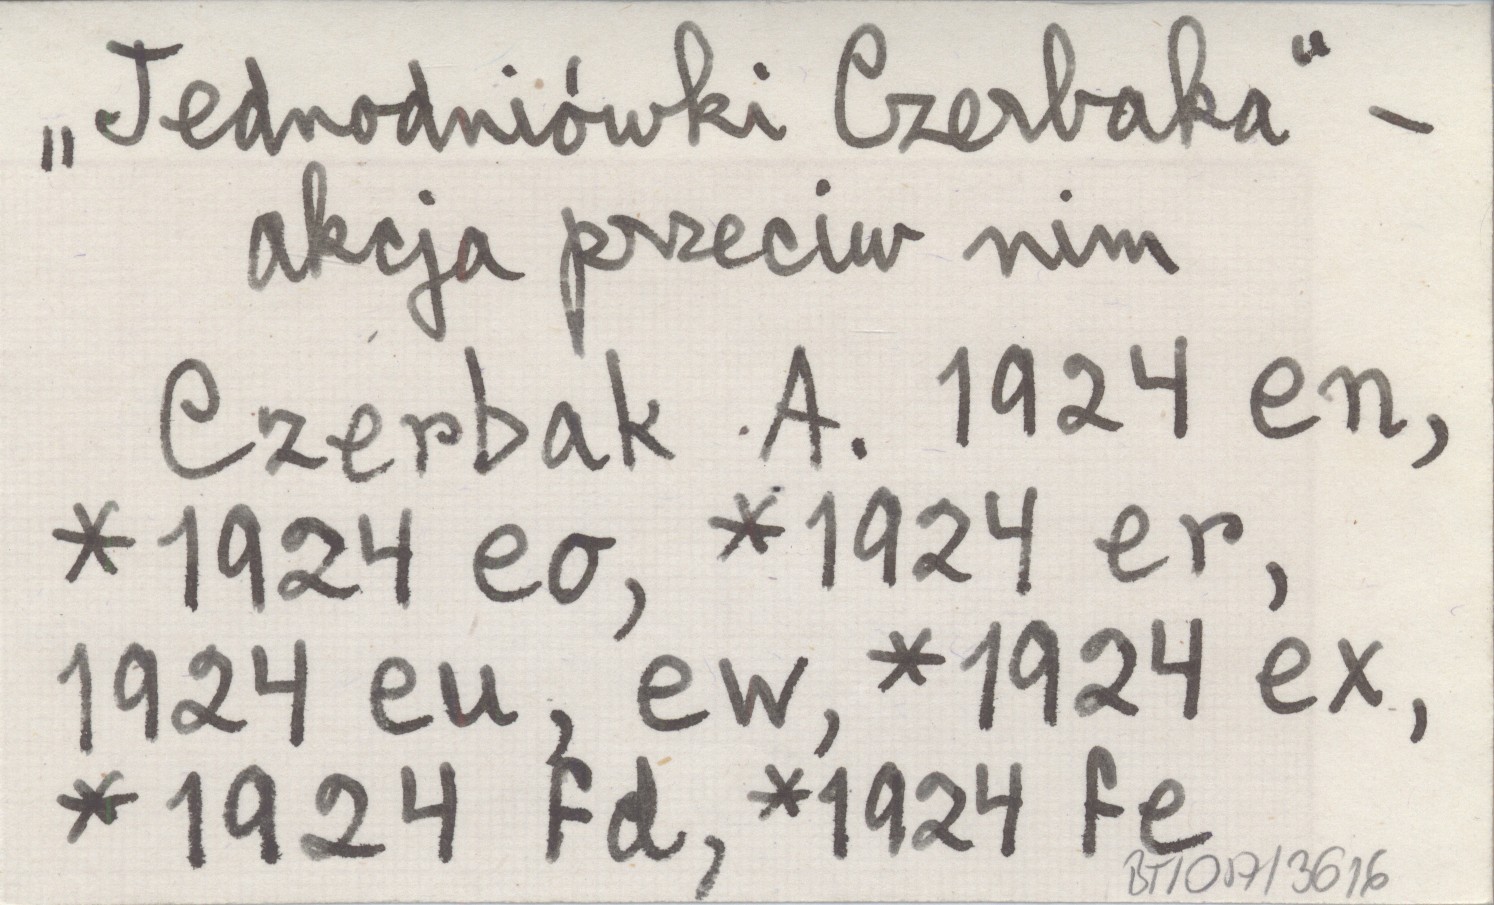 „Jednodniówki Czerbaka" –
akcja przeciw nim
Czerbak A. 1924 en,
*1924 eo, *1924 er,
1924 eu, ew, *1924 ex,
*1924 fd, *1924 fe
BT/017/3616